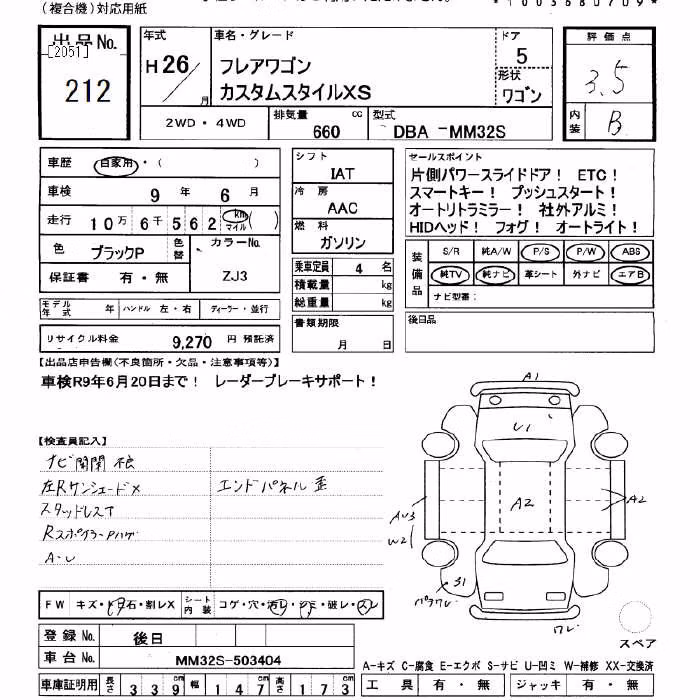 (複合機)対応用紙
*1003680709*
出品No.
[2051]
212
年式
H26/月
車名・グレード
フレアワゴン
カスタムスタイルXS
ドア
5
形状
ワゴン
評価点
3.5
内装
B
2WD・4WD
排気量
660 cc
型式
DBA-MM32S
車歴 自家用・( )
車検 9年 6月
走行 10万6千562 km マイル ( )
色 ブラックP
色替
カラーNo.
ZJ3
保証書 有・無
シフト
IAT
冷房
AAC
燃料
ガソリン
乗車定員 4名
積載量 kg
総重量 kg
書類期限
月 日
セールスポイント
片側パワースライドドア! ETC!
スマートキー! プッシュスタート!
オートリトラミラー! 社外アルミ!
HIDヘッド! フォグ! オートライト!
装備品
S/R 純A/W P/S P/W ABS
純TV 純ナビ 革シート 外ナビ エアB
ナビ型番:
後日品
モデル年式 年 ハンドル 左・右 ディーラー・並行
リサイクル料金 9,270円 預託済
【出品店申告欄(不良箇所・欠品・注意事項等)】
車検R9年6月20日まで! レーダーブレーキサポート!
【検査員記入】
ナビ開閉不良
左Rサンシェード×
エンドパネル歪
スタッドレスT
RスポイラーPハゲ
A-U
A1
U1
A2
A2
AU3
W2
S1
ワレ
スペア
FW キズ・ト石・割レX
シート内装
コゲ・穴・汚レ・シミ・破レ・スレ
登録No. 後日
車台No. MM32S-503404
車庫証明用 長さ 339cm 幅 147cm 高さ 173cm
A-キズ C-腐食 E-エクボ S-サビ U-凹ミ W-補修 XX-交換済
工具 有・無 ジャッキ 有・無